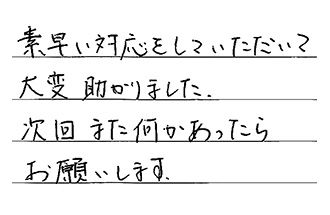 素早い対応をしていただいて
大変助かりました.
次回また何かあったら
お願いします.